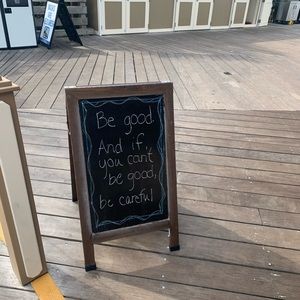 Be good.
And if
you can't
be good,
be careful